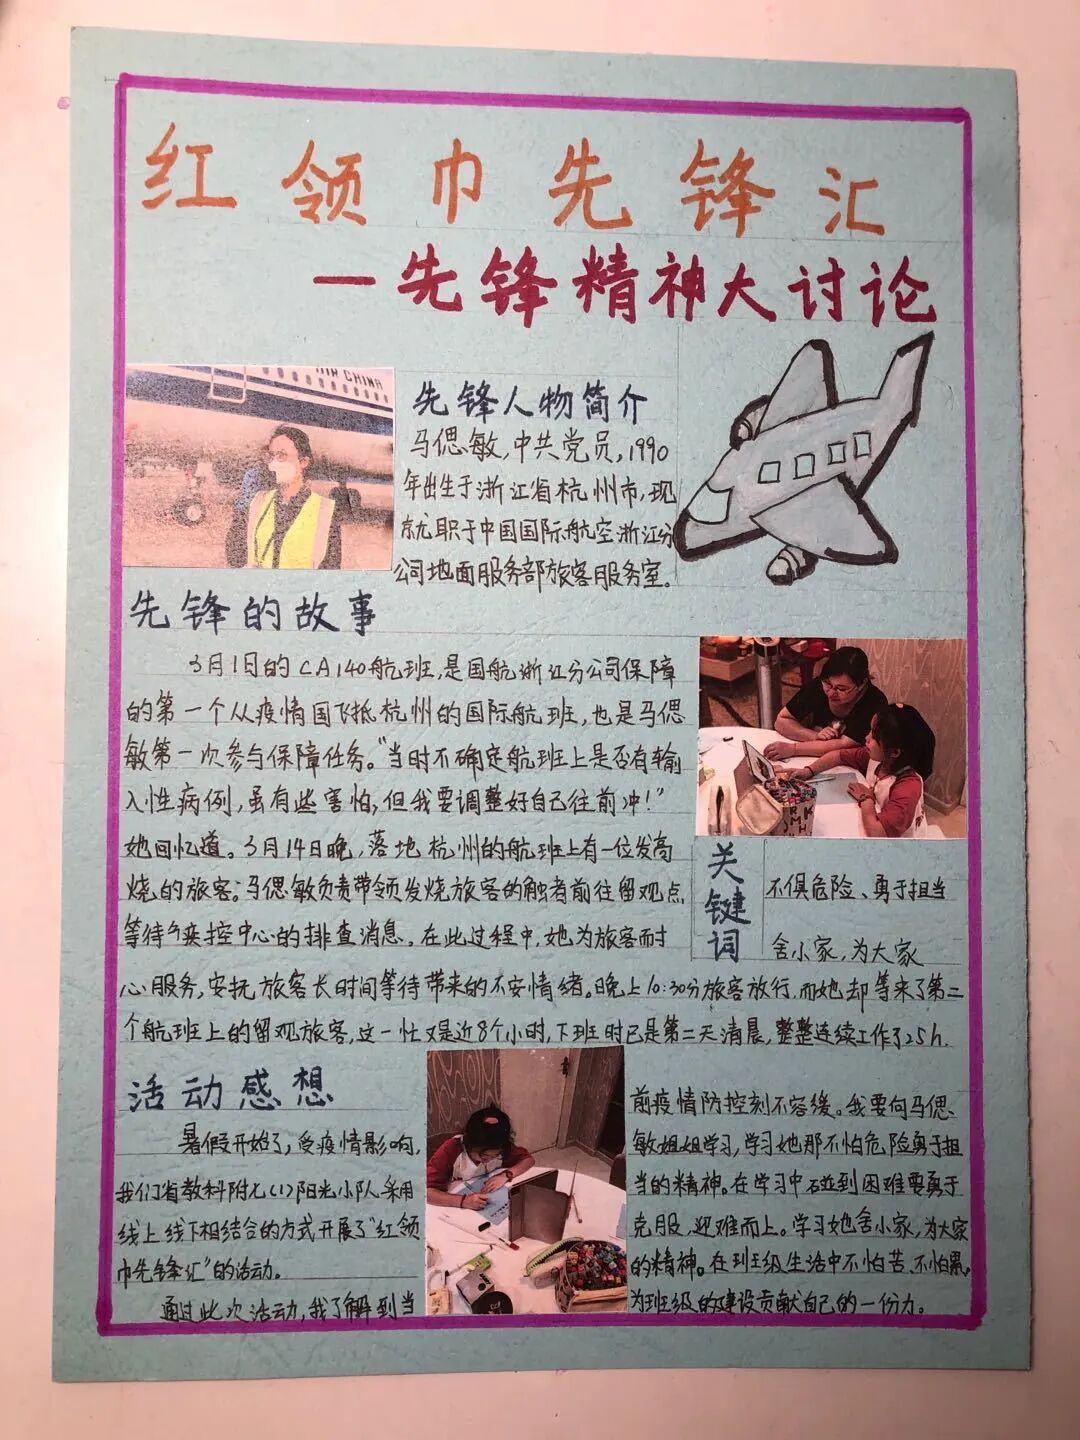 红领巾先锋汇
一先锋精神大讨论
AIR CHINA
先锋人物简介
马偲敏,中共党员,1990
年出生于浙江省杭州市,现
就职于中国国际航空浙江分
公司地面服务部旅客服务室.
先锋的故事
3月1日的CA140航班,是国航浙江分公司保障
的第一个从疫情国飞抵杭州的国际航班,也是马偲
敏第一次参与保障任务。“当时不确定航班上是否有输
入性病例,虽有些害怕,但我要调整好自己往前冲!”
她回忆道。3月14日晚,落地杭州的航班上有一位发高
烧的旅客;马偲敏负责带领发烧旅客的触者前往留观点
等待疾控中心的排查消息。在此过程中,她为旅客耐
心服务,安抚旅客长时间等待带来的不安情绪。晚上10:30分旅客放行,而她却等来了第二
个航班上的留观旅客,这一忙又是近8个小时,下班时已是第二天清晨,整整连续工作了25h.
关键词
不惧危险、勇于担当
舍小家,为大家
活动感想
暑假开始了,受疫情影响,
我们省教科附七(1)阳光小队采用
线上线下相结合的方式开展了“红领
巾先锋汇”的活动。
通过此次活动,我了解到当
前疫情防控刻不容缓。我要向马偲
敏姐姐学习,学习她那不怕危险勇于担
当的精神。在学习中碰到困难要勇于
克服,迎难而上。学习她舍小家,为大家
的精神。在班级生活中不怕苦、不怕累,
为班级的建设贡献自己的一份力。